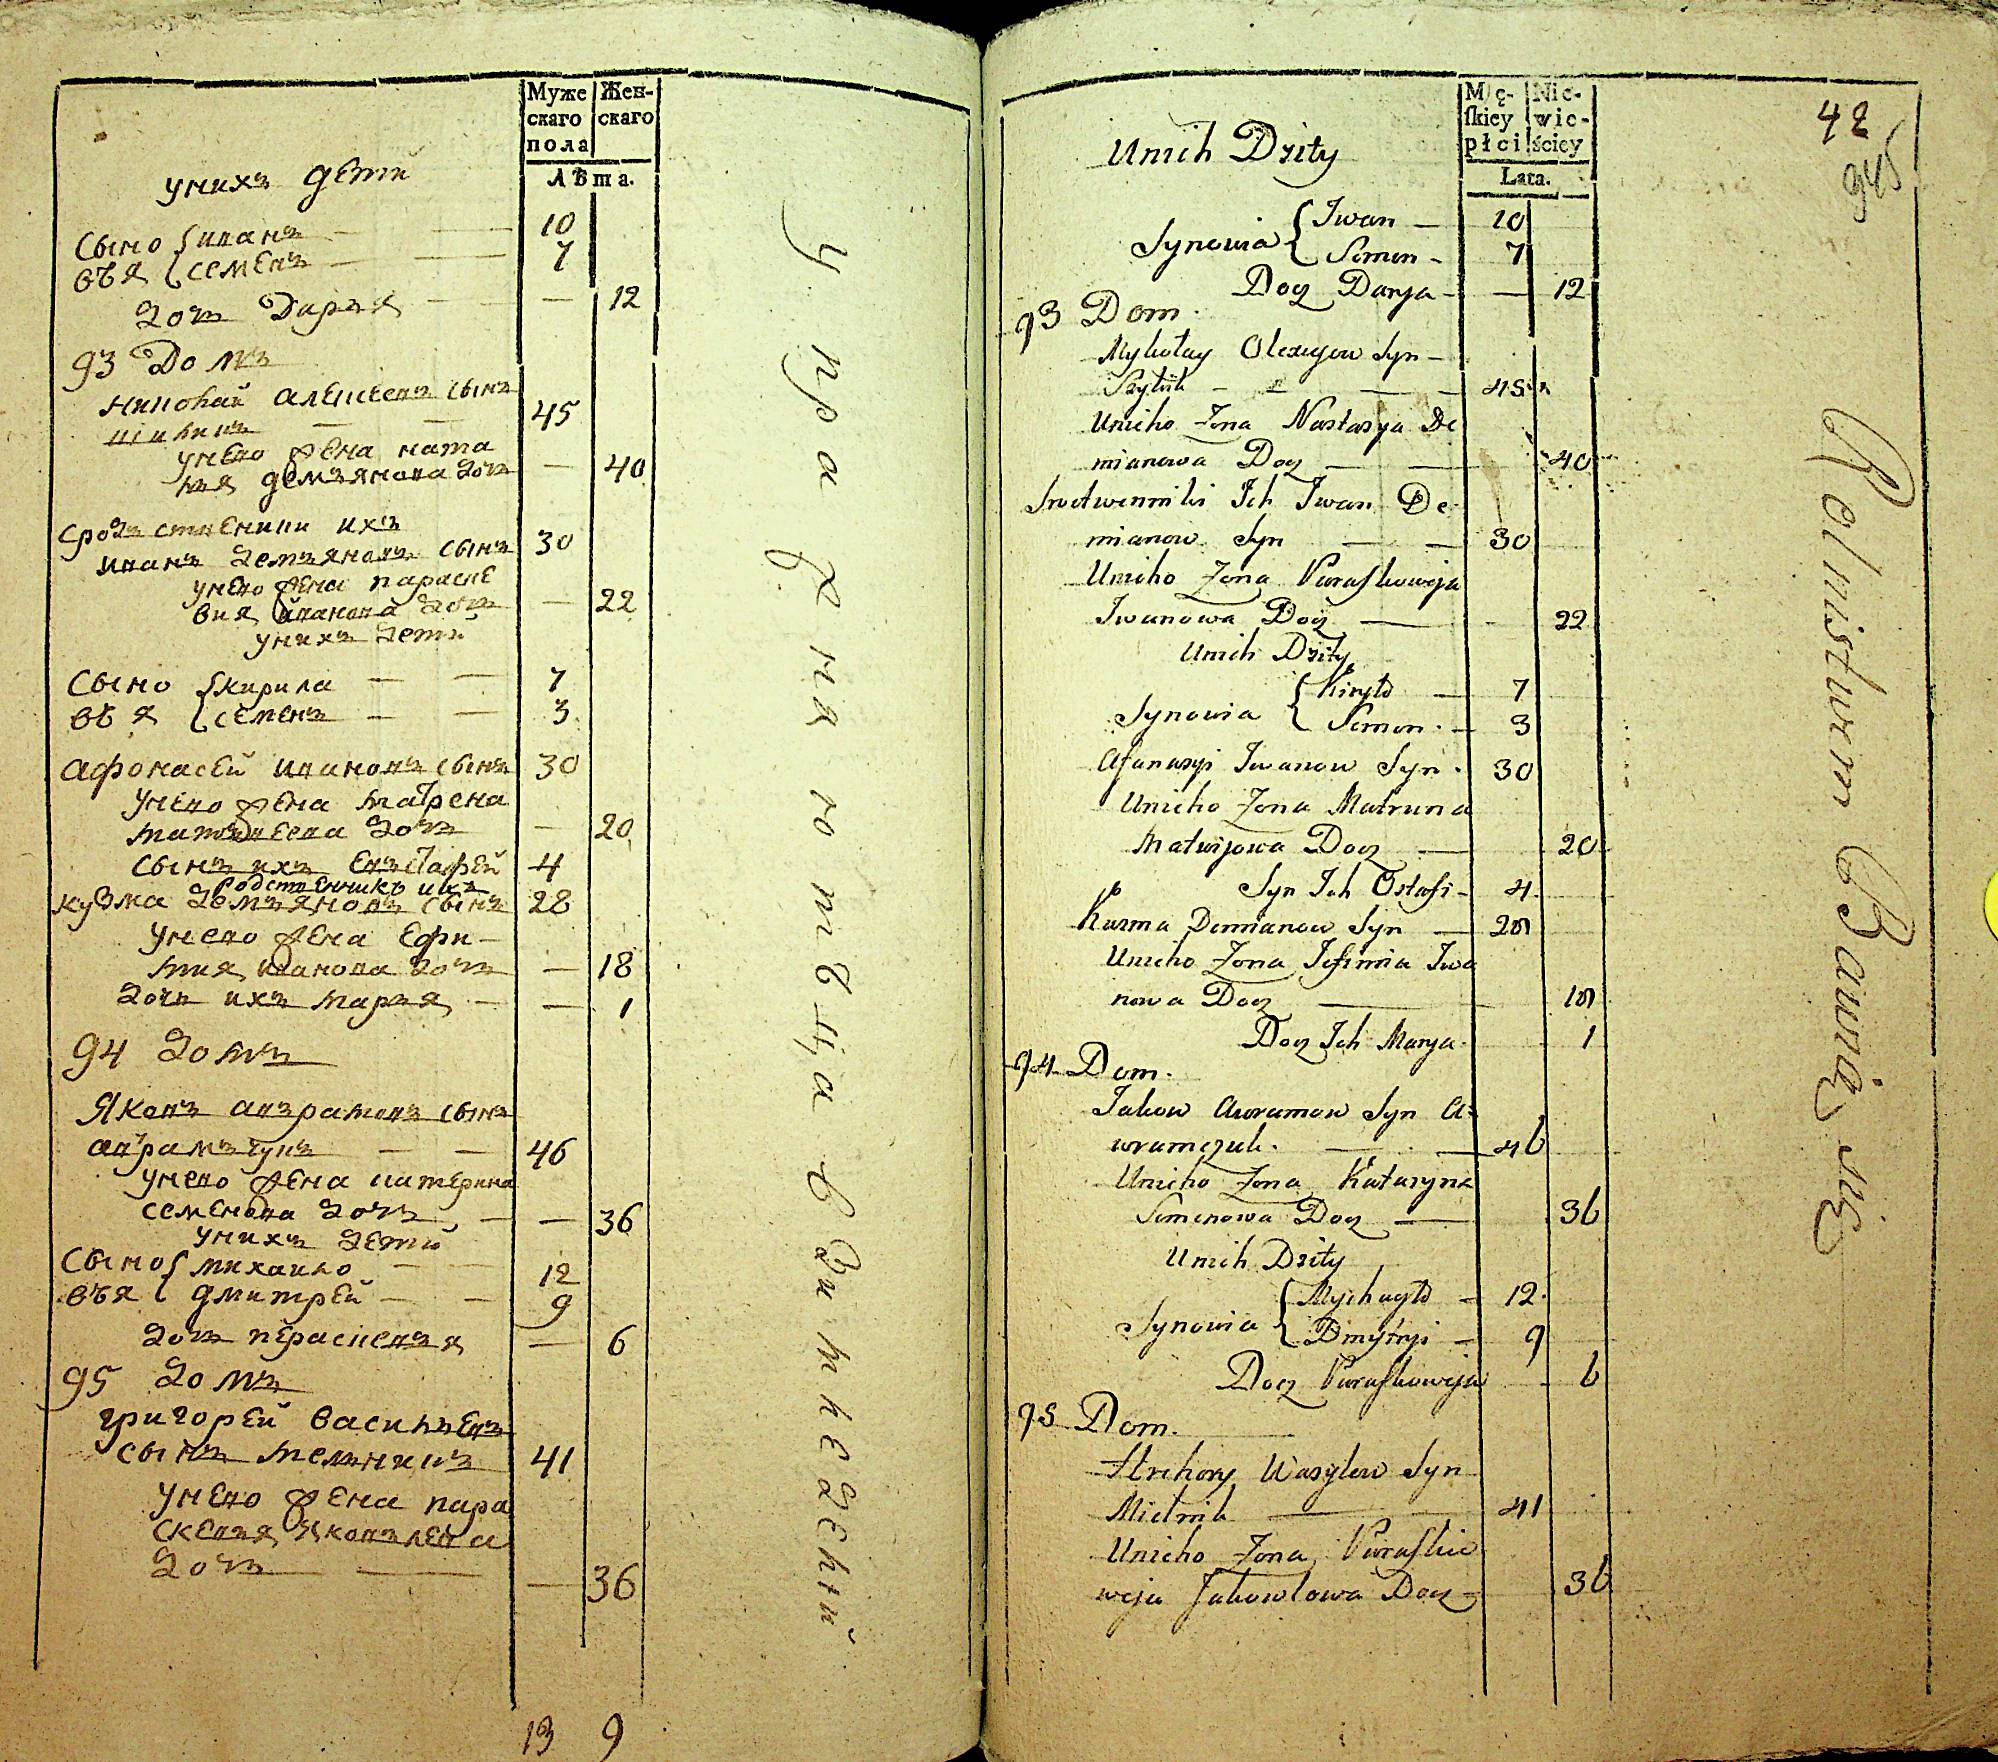 Муже
скаго
пола
Жен-
скаго
Лѣта.
унихъ дети
Сыно иванъ — — 10
вья семенъ — — 7
дочь Дарья — — — 12
93 Домъ
николай алексеевъ сынъ
— — 45
унево жена наста
сья демьянова дочь — 40
сродственики ихъ
иванъ демьяновъ сынъ 30
унево жена параске
вия иванова дочь — 22
унихъ дети
Сыно кирила — — 7
вья семенъ — — 3
афонасей ивановъ сынъ 30
унево жена матрена
матвѣева дочь — 20
сынъ ихъ евстафей 4
Родственникъ ихъ
кузма демьяновъ сынъ 28
унево жена ефи-
мия иванова дочь — 18
дочь ихъ марья — — 1
94 домъ
Яковъ авърамовъ сынъ
аврамъчукъ — — 46
унево жена катерина
семенова дочь — — 36
унихъ дети
Сыно михаило — — 12
вья дмитрей — — 9
дочь парасковья — 6
95 домъ
григорей васильевъ
сынъ мельникъ 41
унево жена пара
скевья яковълева
дочь — — — 36
13 9
У пражнаго твца возиткевичей
Męs-
skiey
płci
Nie-
wie-
ściey
Lata.
42
945
Unich Dzity
Synowia Iwan — 10
Semen - 7
Docz Darya - — 12
93 Dom.
Mykołay Olexiejow Syn —
Szytik — — — — 45
Unieho Zona Nastasya De
mianowa Docz — — 40
Srodtwenniki Ich Iwan De
mianow Syn — — 30
Unieho Zona Paraskoweja
Iwanowa Docz — - 22
Unich Dzity
Synowia Kiryło — 7
Semen . — 3
Afanasyi Iwanow Syn . 30
Unieho Zona Matruna
Matwijowa Docz — 20
Syn Ich Ostafi - 4
Kuzma Demianow Syn — 28
Unieho Zona Jefimia Iwa
nowa Docz — 18
Docz Ich Marya 1
94 Dom.
Jakow Awramow Syn A=
wramczuk . — — 46
Unieho Zona Kataryna
Semenowa Docz — 36
Unich Dzity
Synowia Mychayło — 12
Dmytryi — 9
Docz Paraskoweja - 6
95 Dom.
Hrehory Wasylow Syn
Mielnik — — 41
Unieho Zona Paraskie
weja Jakowlowa Docz — 36